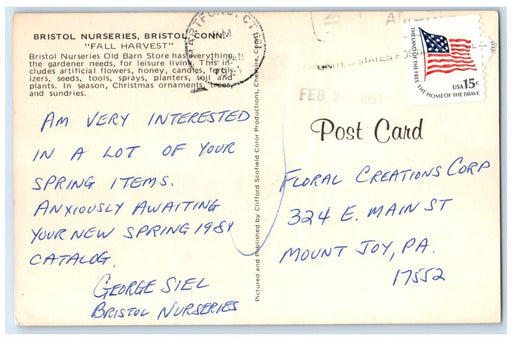 BRISTOL NURSERIES, BRISTOL, CONN.
"FALL HARVEST"
Bristol Nurseries Old Barn Store has everything
the gardener needs, for leisure living. This in-
cludes artificial flowers, honey, candles, fertil-
izers, seeds, tools, sprays, planters, soil and
plants. In season, Christmas ornaments, trees,
and sundries.
AM VERY INTERESTED
IN A LOT OF YOUR
SPRING ITEMS.
ANXIOUSLY AWAITING
YOUR NEW SPRING 1981
CATALOG.
GEORGE SIEL
BRISTOL NURSERIES
Pictured and Published by Clifford Scofield Color Productions, Cheshire, Conn.
HARTFORD, CT
AM
UNITED STATES POSTAL
FEB 2 1981
THE LAND OF THE FREE
USA 15c
THE HOME OF THE BRAVE
Post Card
FLORAL CREATIONS CORP
324 E. MAIN ST
MOUNT JOY, PA.
17552